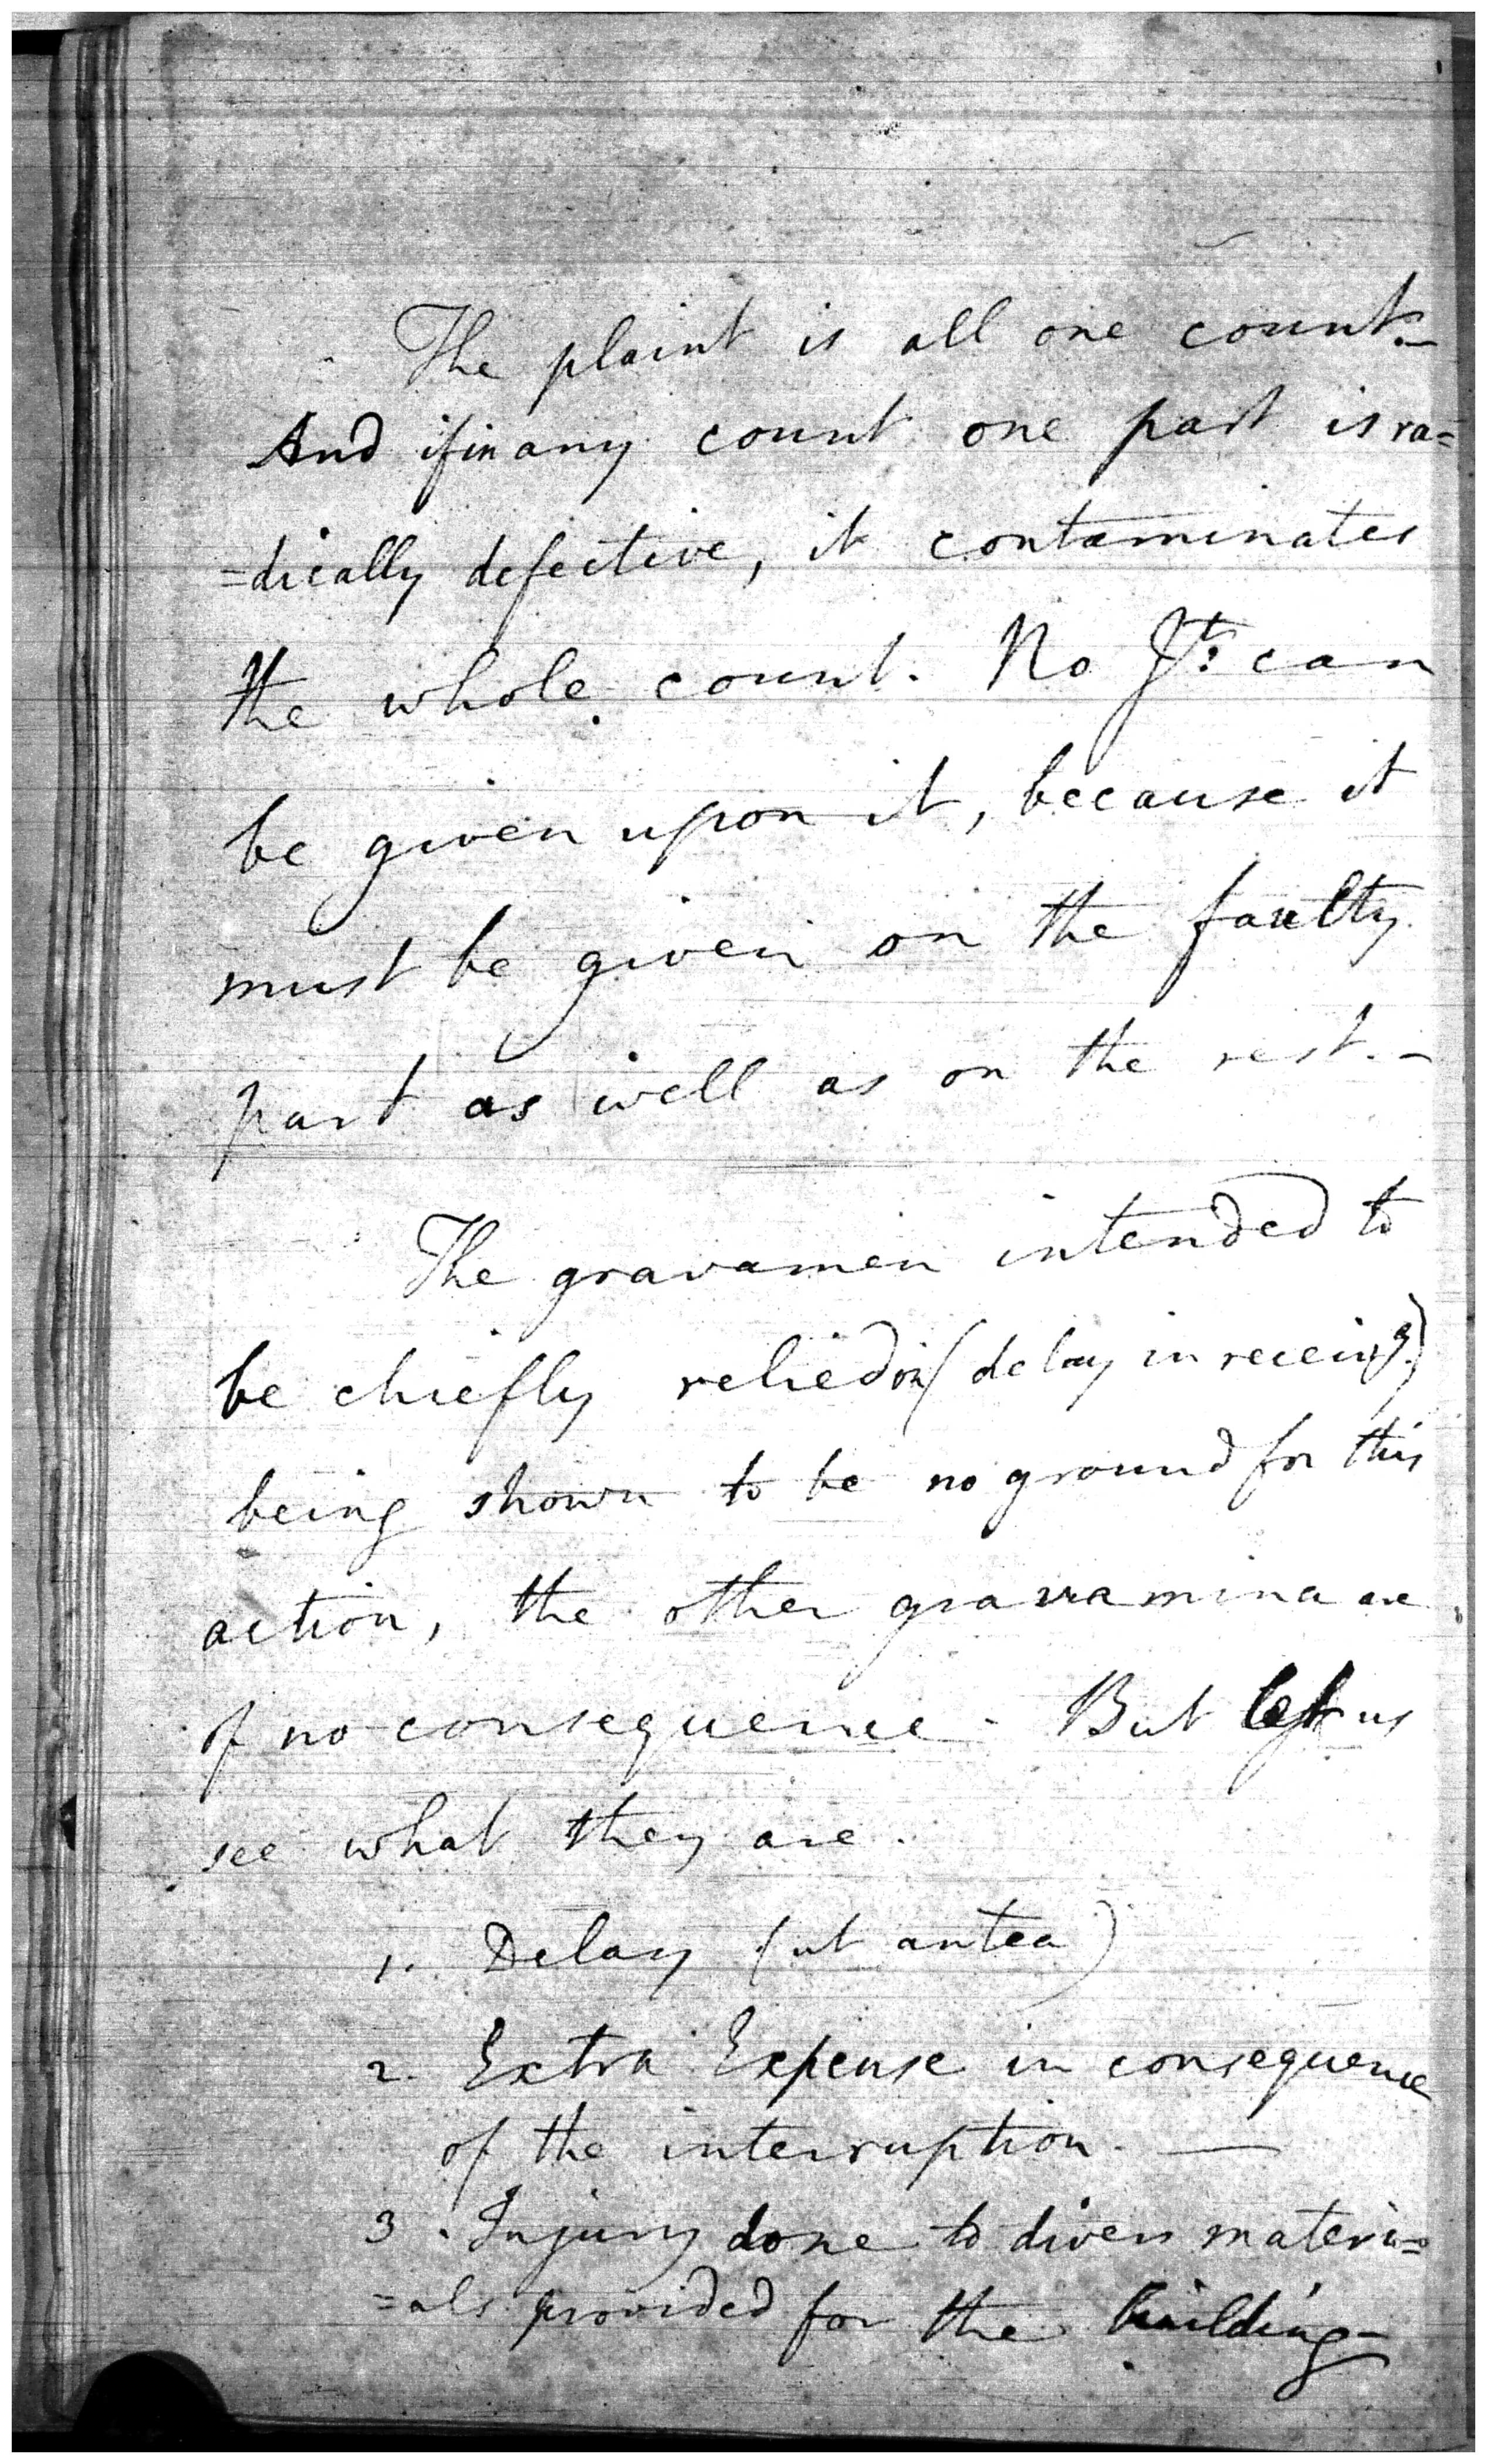 The plaint is all one count.—
And if in any count one part is ra=
=dically defective, it contaminates
the whole count. No Jt. can
be given upon it, because it
must be given on the faulty
part as well as on the rest.—
The gravamen intended to
be chiefly relied on (delay in receivg.)
being shown to be no ground for this
action, the other gravamina are
of no consequence - But let us
see what they are.
1. Delay (ut antea)
2. Extra Expense in consequence
of the interruption. —
3. Injury done to divers materi=
=als provided for the building—